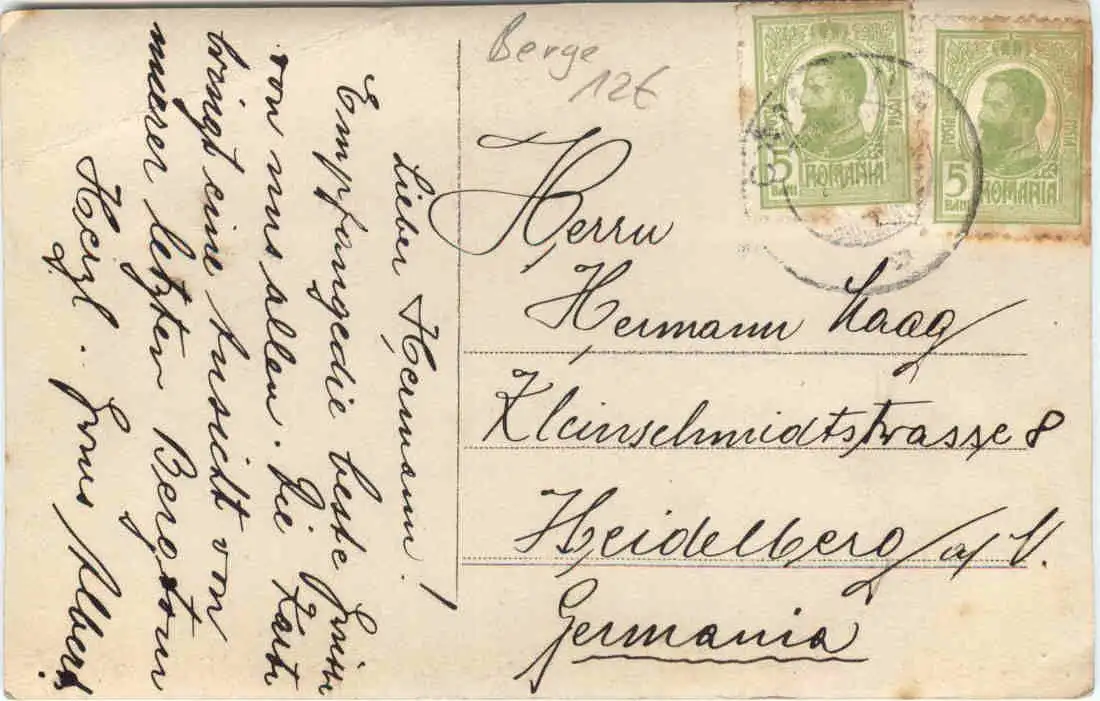 Berge
12€
5
BANI
ROMANIA
POSTA
5
BANI
ROMANIA
POSTA
Herrn
Hermann Haag
Kleinschmidtstrasse 8
Heidelberg a/N.
Germania
Lieber Hermann!
Empfange die beste Grüsse
von uns allen. Die Karte
bringt eine Ansicht von
unserer letzten Bergtour
Herzl. Gruss Albert